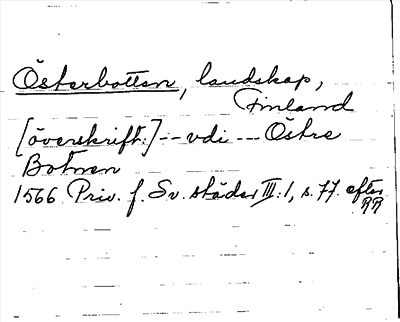 Österbotten, landskap,
Finland
[överskrift:]--vdi---Östre
Botnen
1566 Priv. f. Sv. städer III:1, s. 77. efter
RR